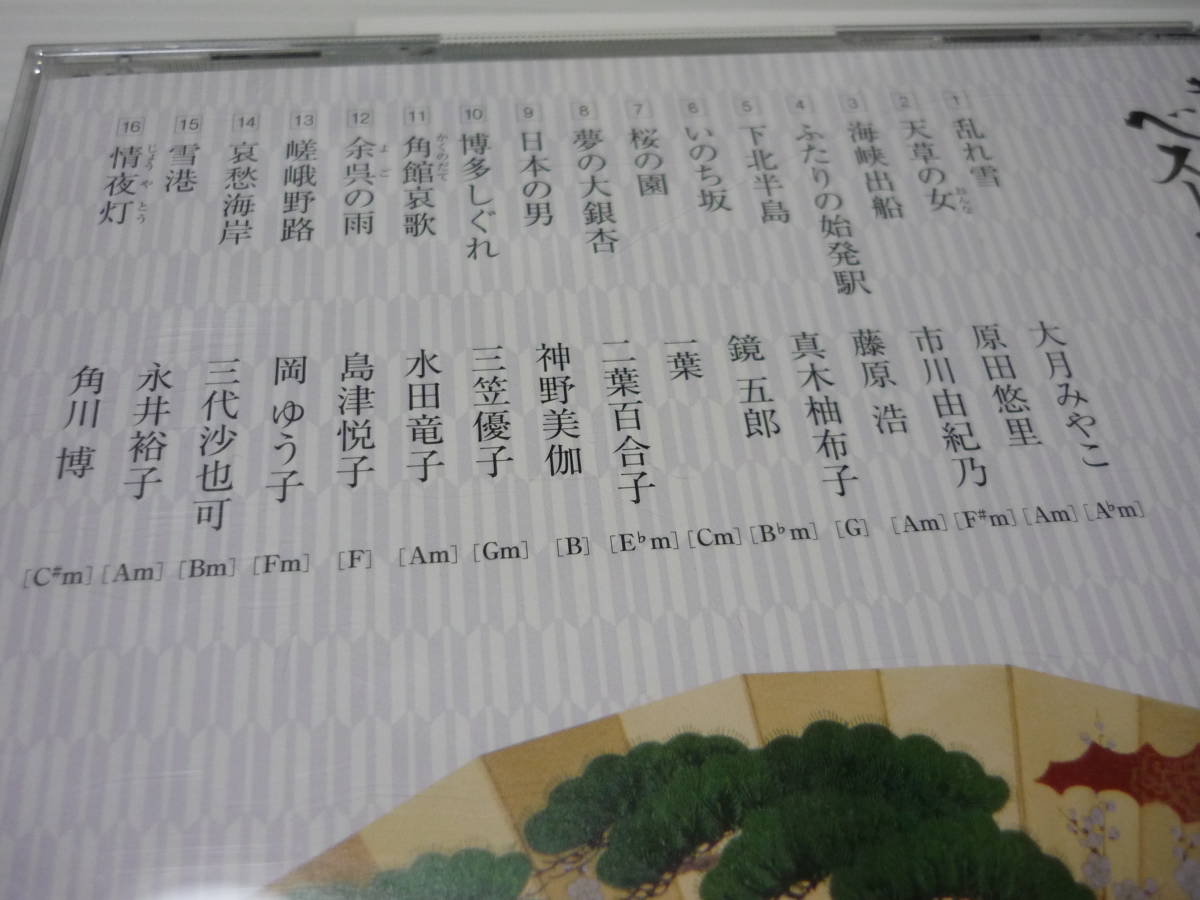 ベスト
1 乱れ雪 大月みやこ [A♭m]
2 天草の女 おんな 原田悠里 [Am]
3 海峡出船 市川由紀乃 [F#m]
4 ふたりの始発駅 藤原 浩 [Am]
5 下北半島 真木柚布子 [G]
6 いのち坂 鏡 五郎 [B♭m]
7 桜の園 一葉 [Cm]
8 夢の大銀杏 二葉百合子 [E♭m]
9 日本の男 神野美伽 [B]
10 博多しぐれ 三笠優子 [Gm]
11 角館哀歌 かくのだて 水田竜子 [Am]
12 余呉の雨 よご 島津悦子 [F]
13 嵯峨野路 岡 ゆう子 [Fm]
14 哀愁海岸 三代沙也可 [Bm]
15 雪港 永井裕子 [Am]
16 情夜灯 じょうやとう 角川 博 [C#m]